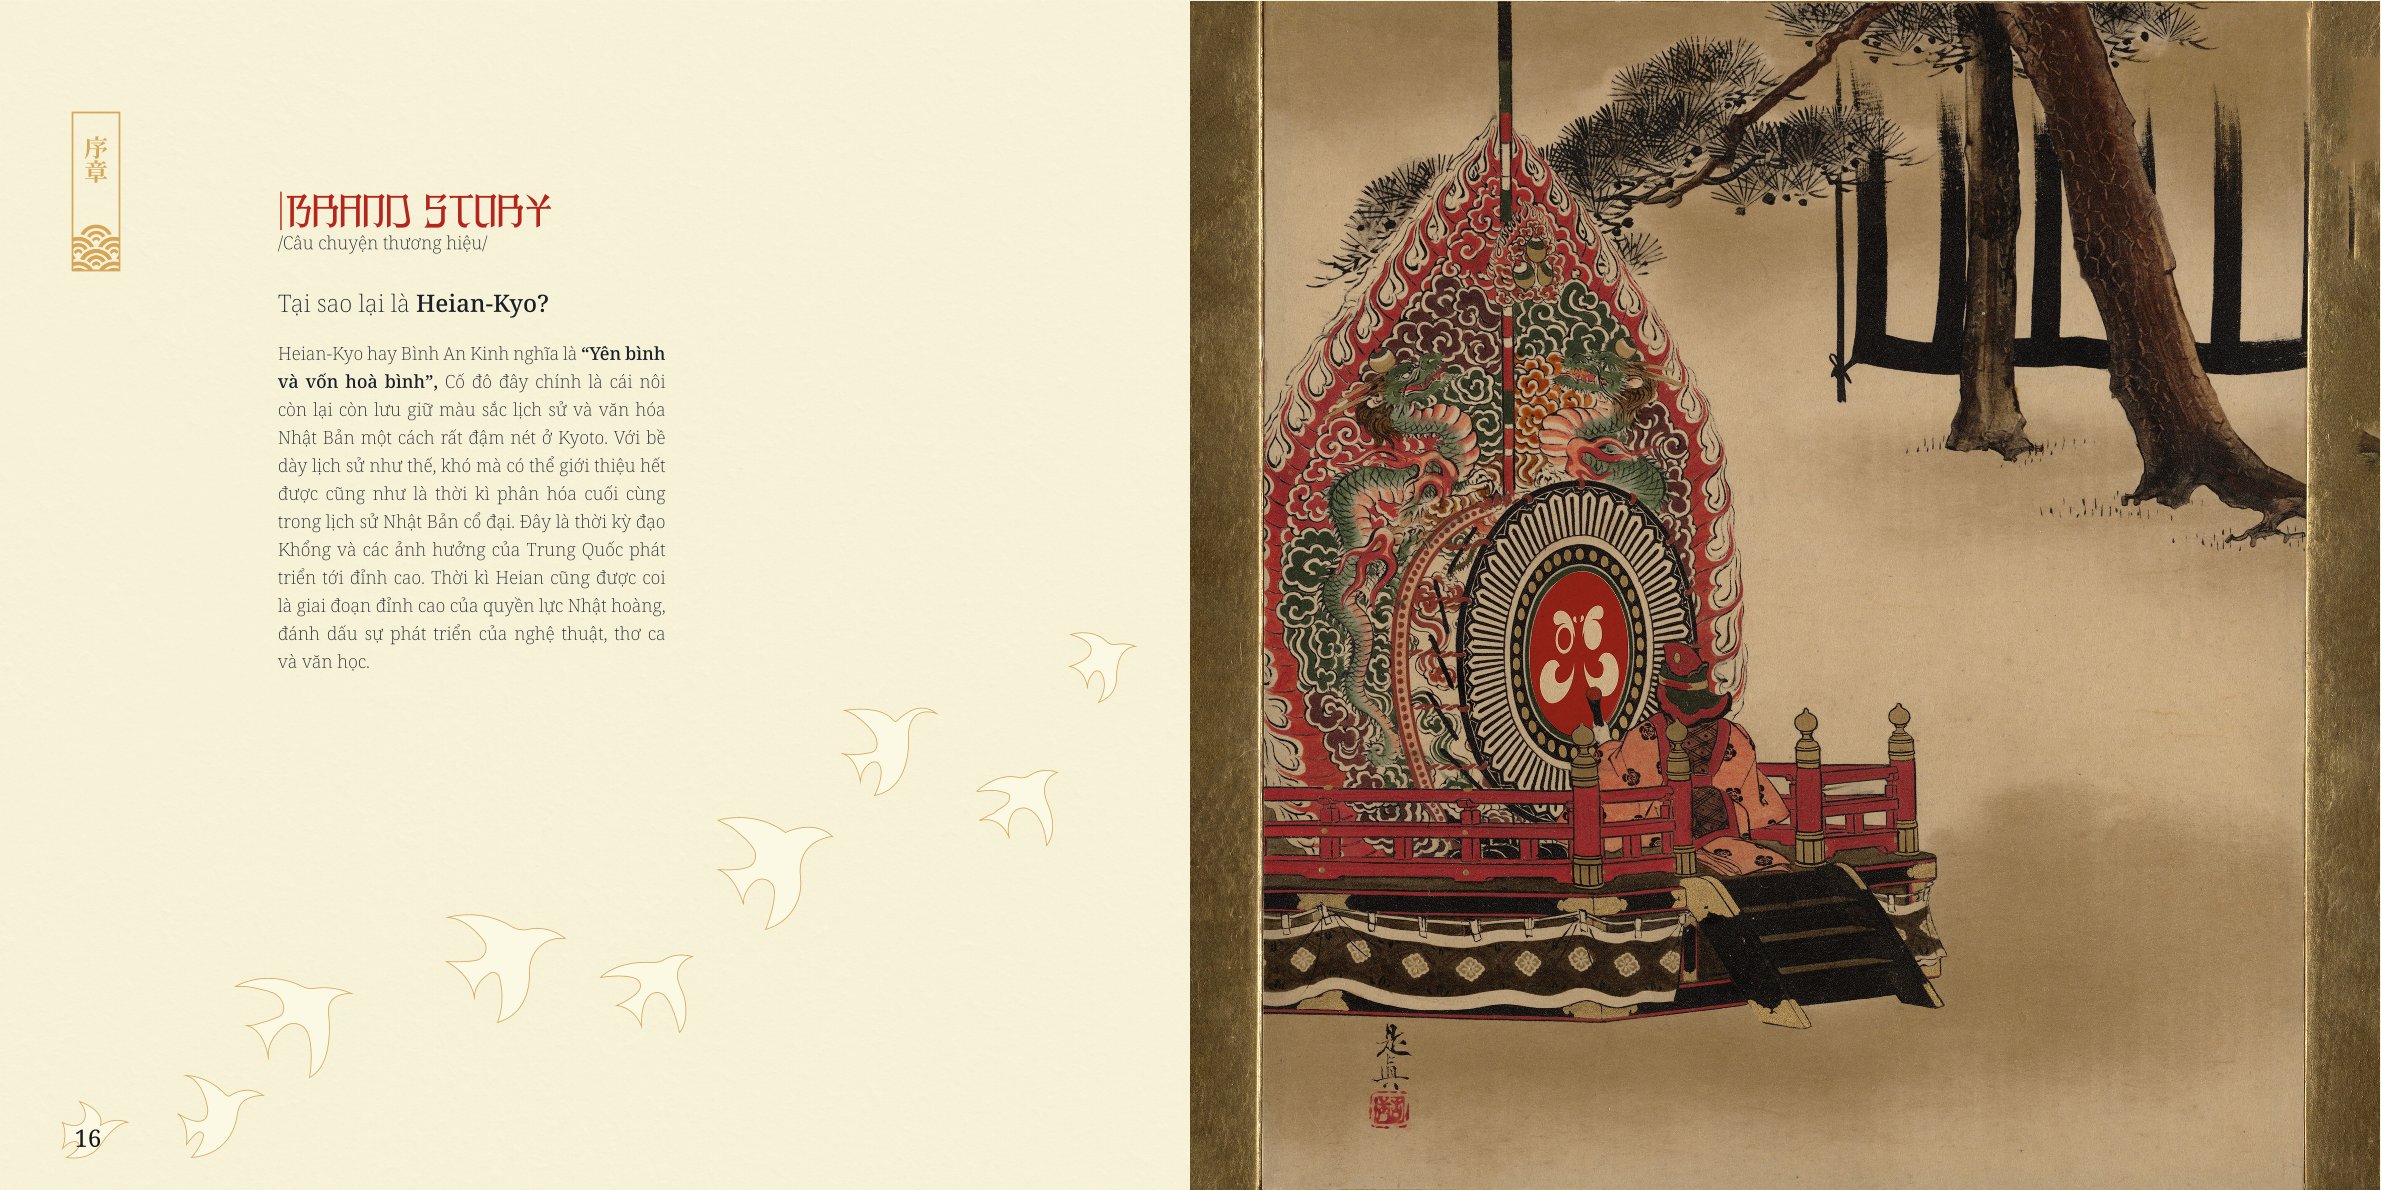 序章
BRAND STORY
/Câu chuyện thương hiệu/
Tại sao lại là Heian-Kyo?
Heian-Kyo hay Bình An Kinh nghĩa là “Yên bình
và vốn hoà bình”, Cố đô đây chính là cái nôi
còn lại còn lưu giữ màu sắc lịch sử và văn hóa
Nhật Bản một cách rất đậm nét ở Kyoto. Với bề
dày lịch sử như thế, khó mà có thể giới thiệu hết
được cũng như là thời kì phân hóa cuối cùng
trong lịch sử Nhật Bản cổ đại. Đây là thời kỳ đạo
Khổng và các ảnh hưởng của Trung Quốc phát
triển tới đỉnh cao. Thời kì Heian cũng được coi
là giai đoạn đỉnh cao của quyền lực Nhật hoàng,
đánh dấu sự phát triển của nghệ thuật, thơ ca
và văn học.
16
是真